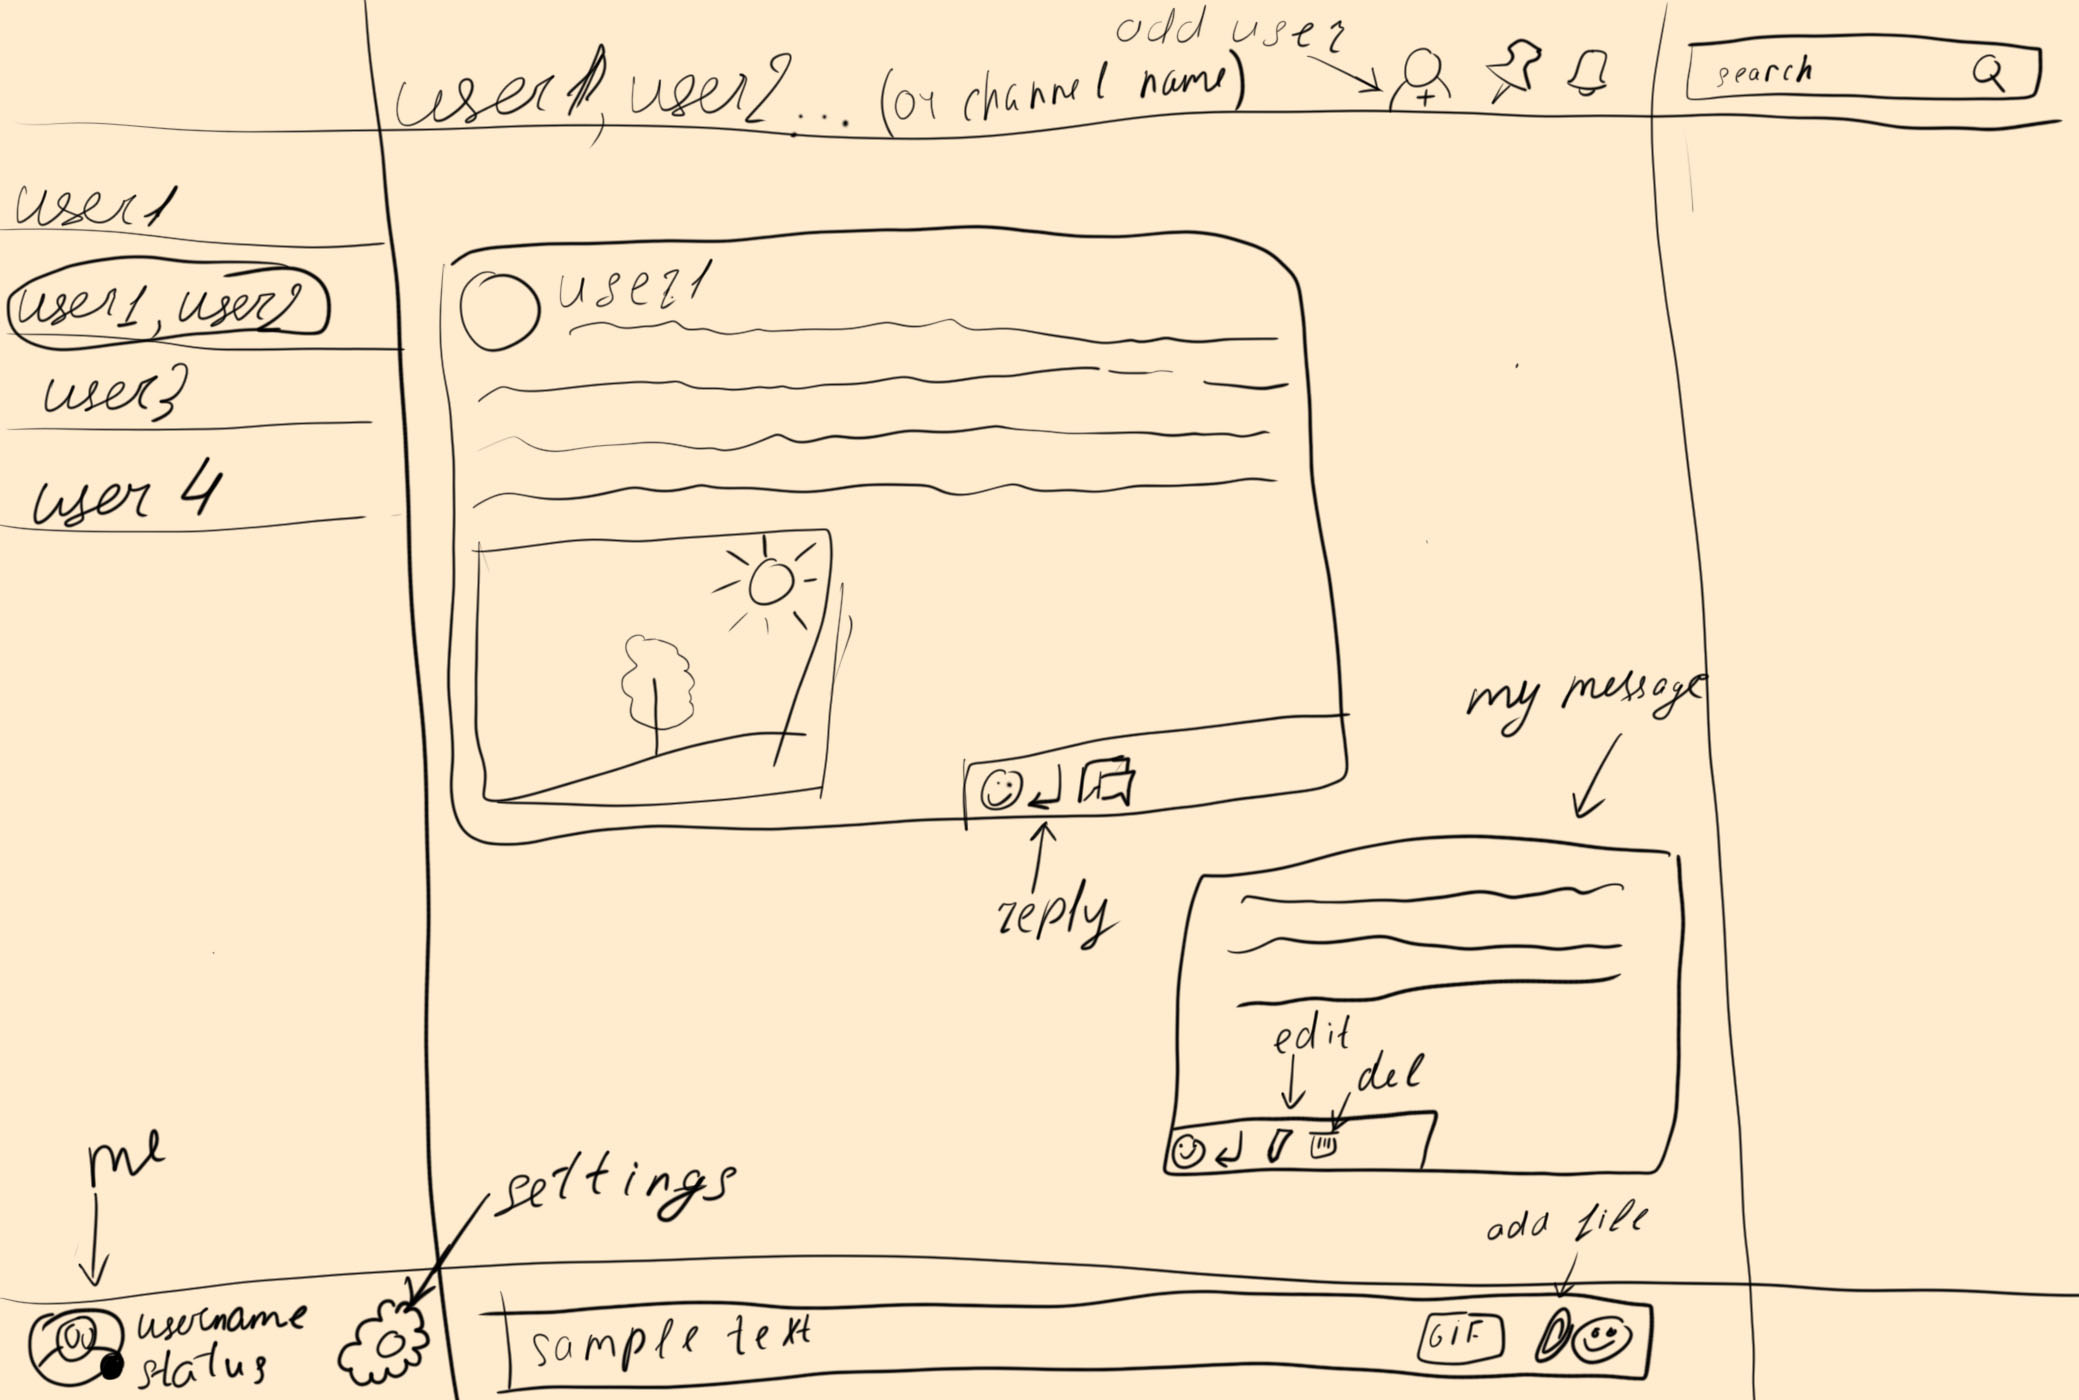 add user
user1, user2... (or channel name)
search
user1
user1, user2
user3
user 4
user1
my message
reply
edit
del
me
settings
add file
username
status
sample text
GIF